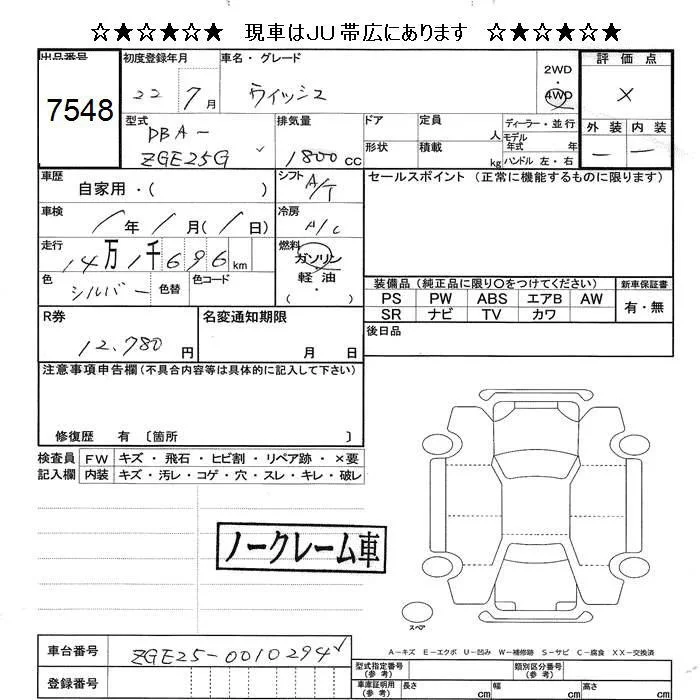 ☆★☆★☆★☆ 現車はJU帯広にあります ☆★☆★☆★☆
出品番号 初度登録年月 車名・グレード 評価点
7548 22 7月 ウィッシュ 2WD 4WD ×
型式 排気量 ドア 定員 人 ディーラー・並行 外装 内装
DBA- ZGE25G 1800 CC 形状 積載 kg モデル年式 年 ハンドル 左・右 — —
車歴 自家用・( ) シフト A/T セールスポイント (正常に機能するものに限ります)
車検 / 年 / 月 ( / 日) 冷房 A/C
走行 14万1千696km 燃料 ガソリン 軽油 ( ・ )
色 シルバー 色替 色コード 装備品 (純正品に限り○をつけてください) 新車保証書
PS PW ABS エアB AW 有・無
SR ナビ TV カワ
R券 12,780円 名変通知期限 月 日 後日品
注意事項申告欄(不具合内容等は具体的に記入して下さい)
修復歴 有 〔箇所 〕
検査員 FW キズ・飛石・ヒビ割・リペア跡・×要
記入欄 内装 キズ・汚レ・コゲ・穴・スレ・キレ・破レ
ノークレーム車
スペア
A-キズ E-エクボ U-凹み W-補修跡 S-サビ C-腐食 XX-交換済
車台番号 ZGE25-0010294 型式指定番号 (参考) 類別区分番号 (参考)
登録番号 車庫証明用 (参考) 長さ cm 幅 cm 高さ cm